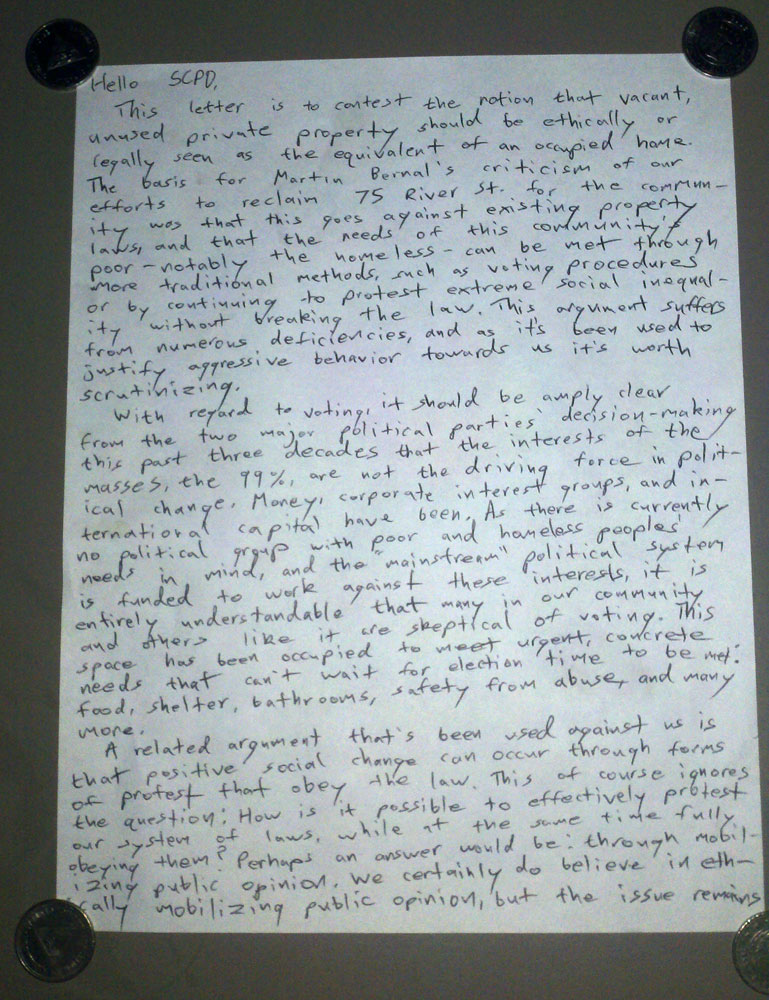 Hello SCPD,
This letter is to contest the notion that vacant,
unused private property should be ethically or
legally seen as the equivalent of an occupied home.
The basis for Martin Bernal's criticism of our
efforts to reclaim 75 River St. for the commun-
ity was that this goes against existing property
laws, and that the needs of this community's
poor - notably the homeless - can be met through
more traditional methods, such as voting procedures
or by continuing to protest extreme social inequal-
ity without breaking the law. This argument suffers
from numerous deficiencies, and as it's been used to
justify aggressive behavior towards us it's worth
scrutinizing.
With regard to voting, it should be amply clear
from the two major political parties' decision-making
this past three decades that the interests of the
masses, the 99%, are not the driving force in polit-
ical change. Money, corporate interest groups, and in-
ternational capital have been. As there is currently
no political group with poor and homeless peoples'
needs in mind, and the "mainstream" political system
is funded to work against these interests, it is
entirely understandable that many in our community
and others like it are skeptical of voting. This
space has been occupied to meet urgent, concrete
needs that can't wait for election time to be met:
food, shelter, bathrooms, safety from abuse, and many
more.
A related argument that's been used against us is
that positive social change can occur through forms
of protest that obey the law. This of course ignores
the question: How is it possible to effectively protest
our system of laws, while at the same time fully
obeying them? Perhaps an answer would be: through mobil-
izing public opinion. We certainly do believe in eth-
ically mobilizing public opinion, but the issue remains